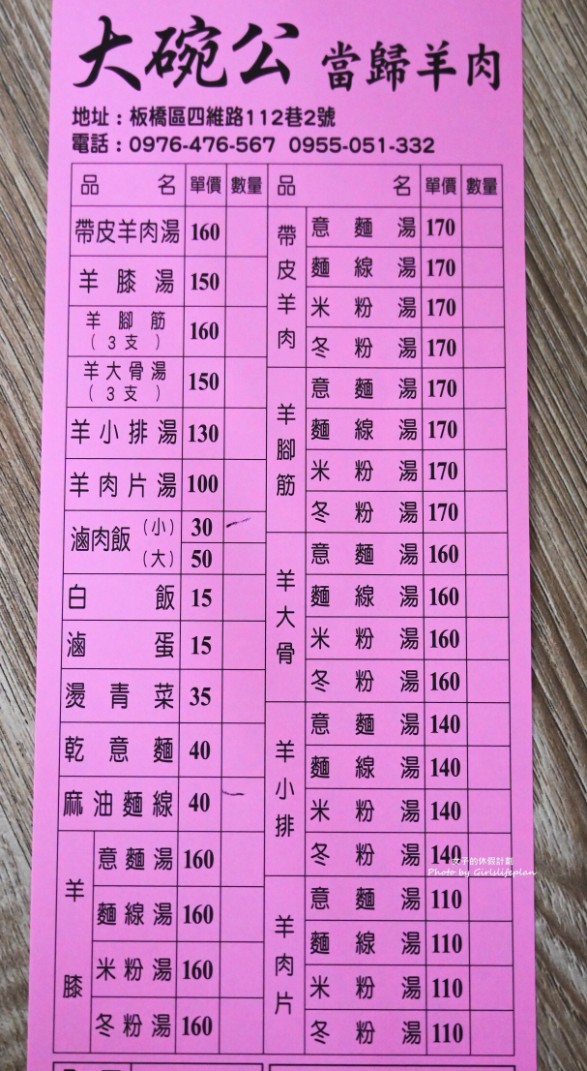 大碗公 當歸羊肉
地址：板橋區四維路112巷2號
電話：0976-476-567 0955-051-332
品名 單價 數量
帶皮羊肉湯 160
羊膝湯 150
羊腳筋（3支） 160
羊大骨湯（3支） 150
羊小排湯 130
羊肉片湯 100
滷肉飯 （小） 30
（大） 50
白飯 15
滷蛋 15
燙青菜 35
乾意麵 40
麻油麵線 40
羊膝
意麵湯 160
麵線湯 160
米粉湯 160
冬粉湯 160
品名 單價 數量
帶皮羊肉
意麵湯 170
麵線湯 170
米粉湯 170
冬粉湯 170
羊腳筋
意麵湯 170
麵線湯 170
米粉湯 170
冬粉湯 170
羊大骨
意麵湯 160
麵線湯 160
米粉湯 160
冬粉湯 160
羊小排
意麵湯 140
麵線湯 140
米粉湯 140
冬粉湯 140
羊肉片
意麵湯 110
麵線湯 110
米粉湯 110
冬粉湯 110
女子的休假計劃
Photo by Girlslifeplan